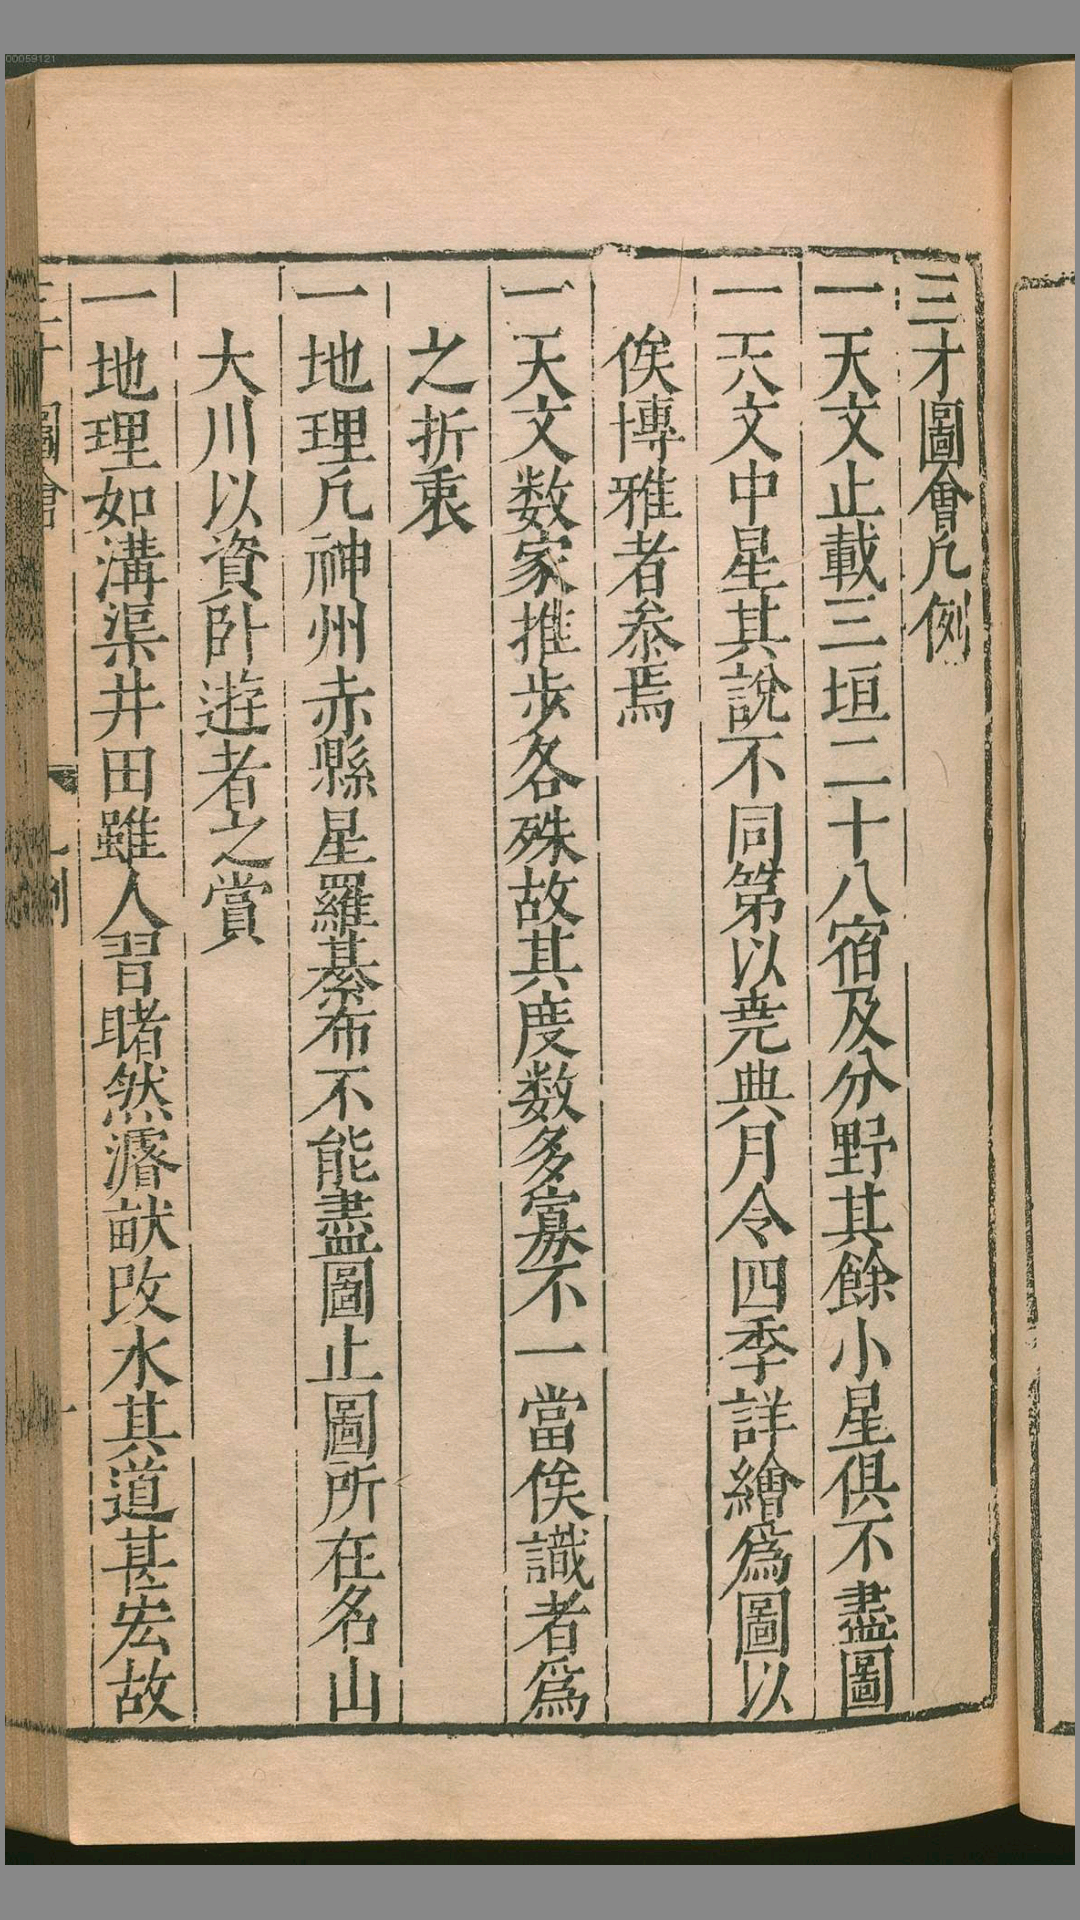 三才圖會凡例
一天文止載三垣二十八宿及分野其餘小星俱不盡圖
一天文中星其說不同第以堯典月令四季詳繪爲圖以
俟博雅者叅焉
一天文数家推步各殊故其度数多寡不一當俟識者爲
之折衷
一地理凡神州赤縣星羅棊布不能盡圖止圖所在名山
大川以資卧遊者之賞
一地理如溝渠井田雖人習睹然濬畎改水其道甚宏故
三才圖會
00059121